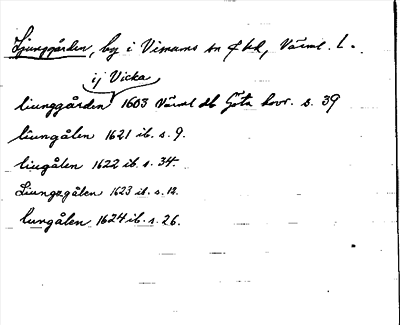 Ljunggården, by i Visnums sn o hd, Värml. L.
ij Vicka
liunggården 1603 Värml db Göta hovr. s. 39
liungålen 1621 ib. s. 9.
liugålen 1622 ib. s. 34.
Liungzgålen 1623 ib. s. 12.
lungålen 1624 ib. s. 26.